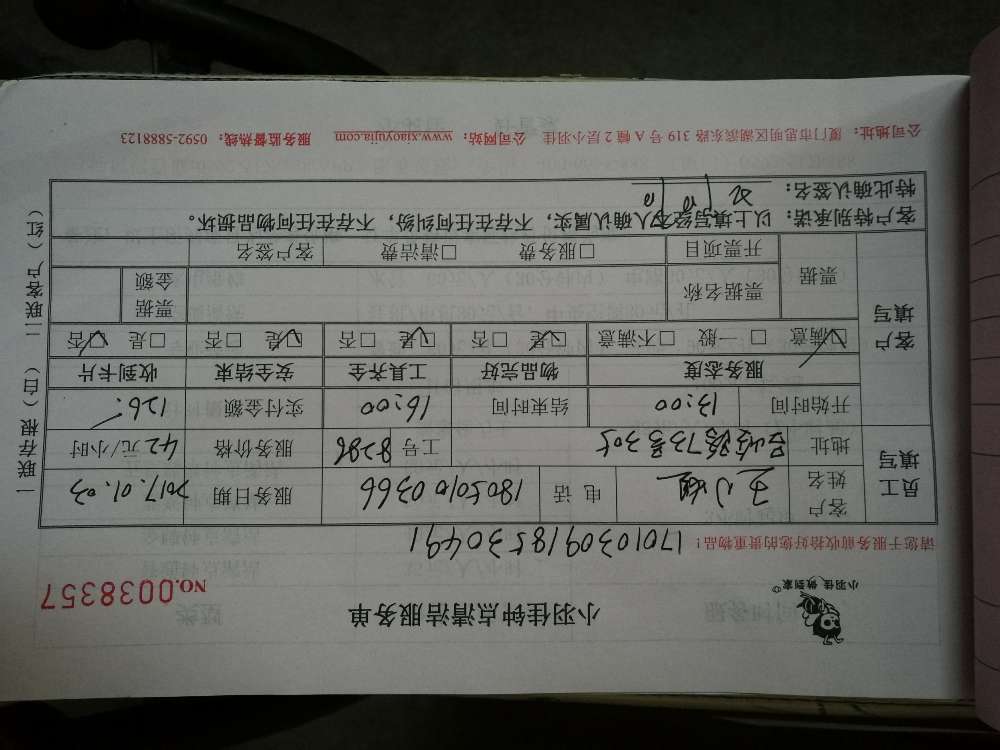 小羽佳 做到家
小羽佳钟点清洁服务单
NO.0038357
请您于服务前收拾好您的贵重物品！
1701030918530491
员工填写
客户姓名 王小姐 电话 18050100366 服务日期 2017.01.03
地址 73号305 工号 8286 服务价格 42元/小时
开始时间 13:00 结束时间 16:00 实付金额 126.
客户填写
服务态度 物品完好 工具齐全 安全结束 收到卡片
☑满意 □一般 □不满意 ☑是 □否 ☑是 □否 ☑是 □否 □是 ☑否
票据 票据名称 票据金额
开票项目 □服务费 □清洁费 客户签名
客户特别承诺：以上填写经本人确认属实，不存在任何纠纷，不存在任何物品损坏。
特此确认签名：
公司地址：厦门市思明区湖滨东路319号A幢2层小羽佳 公司网站：www.xiaoyujia.com 服务监督热线：0592-5888123
一联存根（白） 二联客户（红）